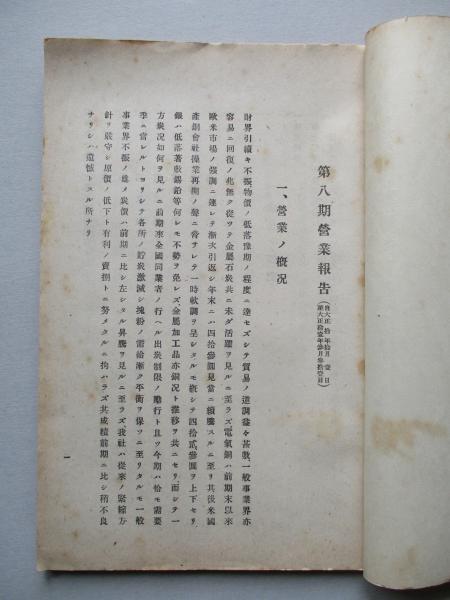 第八期營業報告
自大正拾年拾月壹日
至大正拾壹年參月參拾壹日
一、營業ノ概况
財界引續キ不振物價ノ低落豫期ノ程度ニ達セズシテ貿易ノ逆調益々甚敷一般事業界亦
容易ニ回復ノ兆無ク從ツテ金屬石炭共ニ未ダ活躍ヲ見ルニ至ラズ電氣銅ハ前期末以來
歐米市場ノ强調ニ連レテ漸次引返シ年末ニハ四拾參圓見當ニ續騰スルニ至リ其後米國
產銅會社操業再開ノ聲ニ脅サレテ一時軟調ヲ呈シタルモ概シテ四拾貳參圓ヲ上下セリ
銀ハ低落著敷錫鉛等何レモ不勢ヲ免レズ金屬加工品亦銅况ト推移ヲ共ニセリ而シテ一
方炭况如何ヲ見ルニ前期來全國同業者ノ行ヘル出炭制限ノ勵行ト且ツ今期ハ恰モ需要
季ニ當レルトヨリシテ各所ノ貯炭激減シ塊粉ノ需給漸ク平衡ヲ保ツニ至リタルモ一般
事業界不振ノ爲メ炭價ハ前期ニ比シ左シタル昇騰ヲ見ルニ至ラズ我社ハ從來ノ緊縮方
針ヲ嚴守シ原價ノ低下ト有利ノ賣捌トニ努メタルニ拘ハラズ其成績前期ニ比シ稍不良
ナリシハ遺憾トスル所ナリ
一